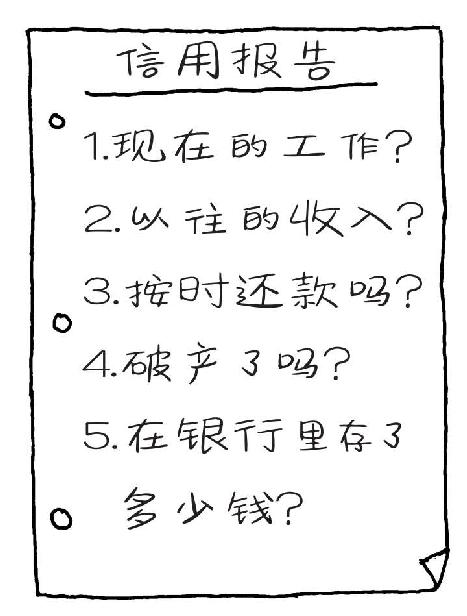 信用报告
1.现在的工作?
2.以往的收入?
3.按时还款吗?
4.破产了吗?
5.在银行里存了
多少钱?